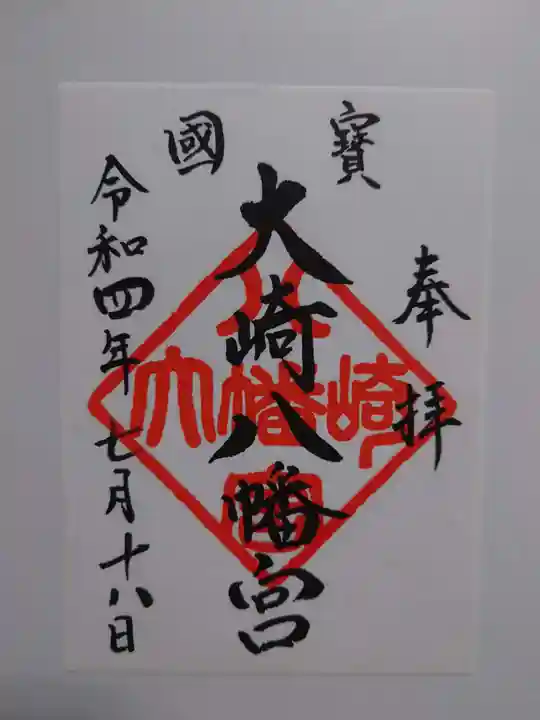 奉拝
國寶
大崎八幡宮
令和四年七月十八日
大崎八幡宮